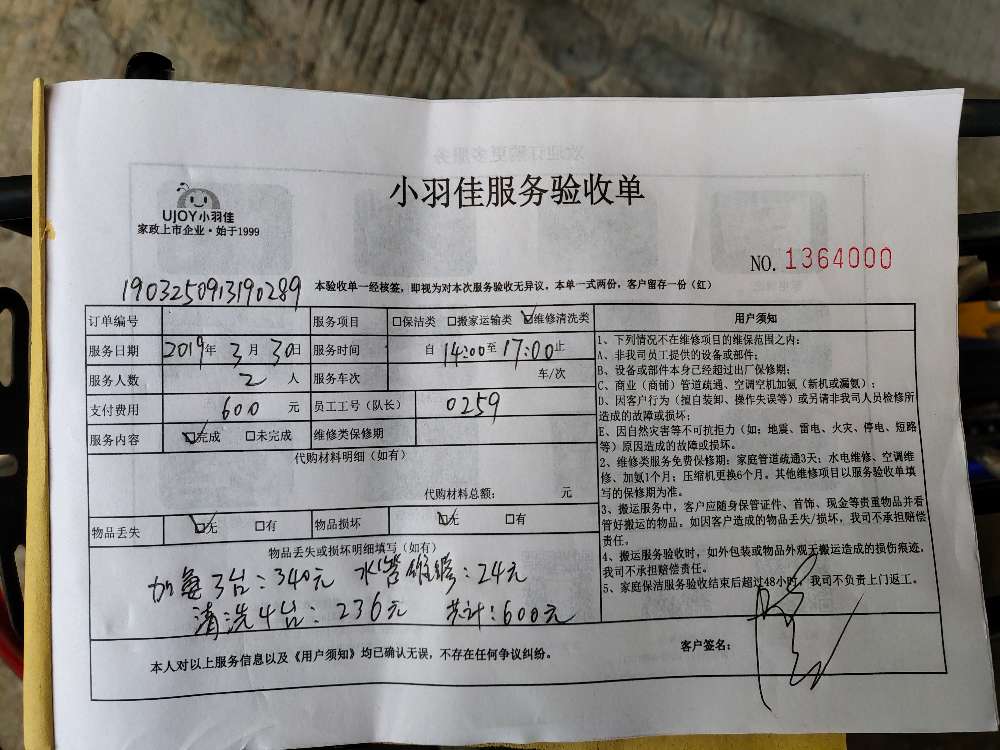 小羽佳服务验收单
UJOY小羽佳
家政上市企业·始于1999
NO. 1364000
1903250913190289
本验收单一经核签，即视为对本次服务验收无异议，本单一式两份，客户留存一份（红）
订单编号 服务项目 □保洁类 □搬家运输类 ☑维修清洗类
服务日期 2019年 3月 30日 服务时间 自 14:00至 17:00止
服务人数 2 人 服务车次 车/次
支付费用 600 元 员工工号（队长） 0259
服务内容 ☑完成 □未完成 维修类保修期
代购材料明细（如有）
代购材料总额： 元
物品丢失 ☑无 □有 物品损坏 ☑无 □有
物品丢失或损坏明细填写（如有）
加氟3台：340元 水管维修：24元
清洗4台：236元 共计：600元
用户须知
1、下列情况不在维修项目的维保范围之内：
A、非我司员工提供的设备或部件；
B、设备或部件本身已经超过出厂保修期；
C、商业（商铺）管道疏通、空调空机加氨（新机或漏氨）；
D、因客户行为（擅自装卸、操作失误等）或另请非我司人员检修所
造成的故障或损坏；
E、因自然灾害等不可抗拒力（如：地震、雷电、火灾、停电、短路
等）原因造成的故障或损坏。
2、维修类服务免费保修期：家庭管道疏通3天；水电维修、空调维
修、加氨1个月；压缩机更换6个月。其他维修项目以服务验收单填
写的保修期为准。
3、搬运服务中，客户应随身保管证件、首饰、现金等贵重物品并看
管好搬运的物品。如因客户造成的物品丢失/损坏，我司不承担赔偿
责任。
4、搬运服务验收时，如外包装或物品外观无搬运造成的损伤痕迹，
我司不承担赔偿责任。
5、家庭保洁服务验收结束后超过48小时，我司不负责上门返工。
本人对以上服务信息以及《用户须知》均已确认无误，不存在任何争议纠纷。
客户签名：